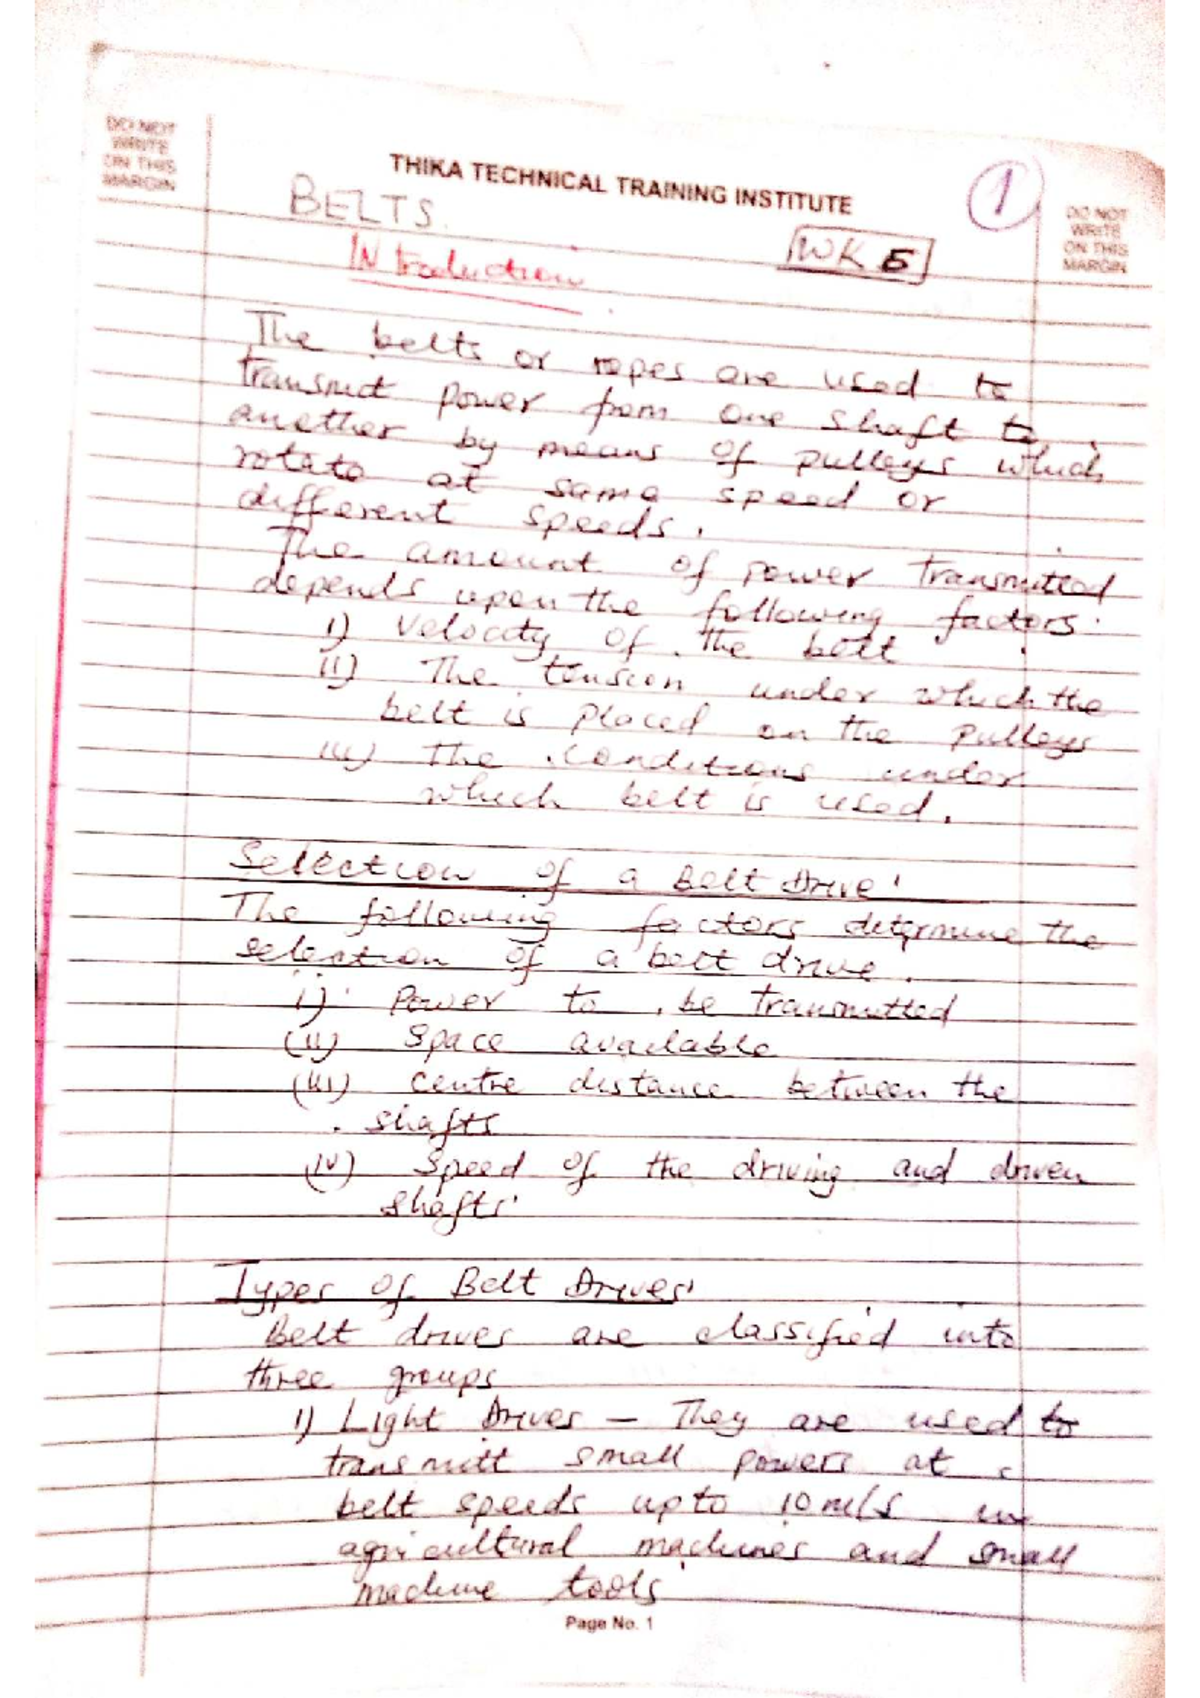 DO NOT
WRITE
ON THIS
MARGIN
THIKA TECHNICAL TRAINING INSTITUTE
1
DO NOT
WRITE
ON THIS
MARGIN
BELTS
WK 5
INtroduction
The belts or ropes are used to
transmit power from one shaft to
another by means of pulleys which
rotate at same speed or
different speeds.
The amount of power transmitted
depends upon the following factors.
i) Velocity of the belt
ii) The tension under which the
belt is placed on the pulleys
iii) The conditions under
which belt is used.
Selection of a Belt Drive
The following factors determine the
selection of a belt drive.
i) Power to be transmitted
(ii) Space available
(iii) centre distance between the
shafts
(iv) Speed of the driving and driven
shafts
Types of Belt Drives
Belt drives are classified into
three groups
1) Light Drives - They are used to
transmitt small powers at
belt speeds upto 10m/s in
agricultural machines and small
machine tools
Page No. 1